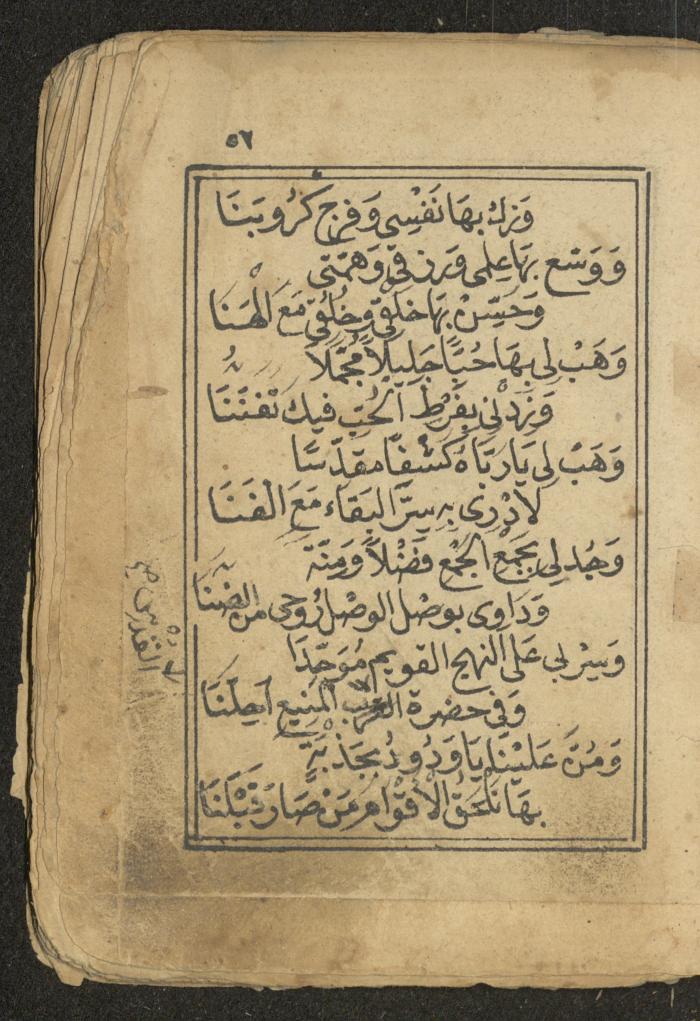 ٥٦
وَزَكِّ بِهَا نَفْسِي وَفَرِّجْ كُرُوبَنَا
وَوَسِّعْ بِهَا عِلْمِي وَرِزْقِي وَهِمَّتِي
وَحَسِّنْ بِهَا خَلْقِي وَخُلُقِي مَعَ الْهَنَا
وَهَبْ لِي بِهَا حُبًّا جَلِيلًا مُجَمَّلًا
وَزِدْنِي بِفَرْطِ الْحُبِّ فِيكَ تَفَنُّنَا
وَهَبْ لِي يَارَبَّاهُ كَشْفًا مُقَدَّسًا
لِأَدْرِي بِهِ سِرَّ الْبَقَاءِ مَعَ الْفَنَا
وَجُدْ لِي بِجَمْعِ الْجَمْعِ فَضْلًا وَمِنَّةً
وَدَاوِي بِوَصْلِ الْوَصْلِ رُوحِي مِنَ الضَّنَا
وَسِرْ بِي عَلَى النَّهْجِ الْقَوِيمِ مُوَحِّدًا
وَفِي حَضْرَةِ الْقُدْسِ الْمَنِيعِ أَحِلَّنَا
وَمُنَّ عَلَيْنَا يَا وَدُودُ بِجَذْبَةٍ
بِهَا نَلْحَقُ الْأَقْوَامَ مَنْ صَارَ قَبْلَنَا
الْقُدْسِ صح